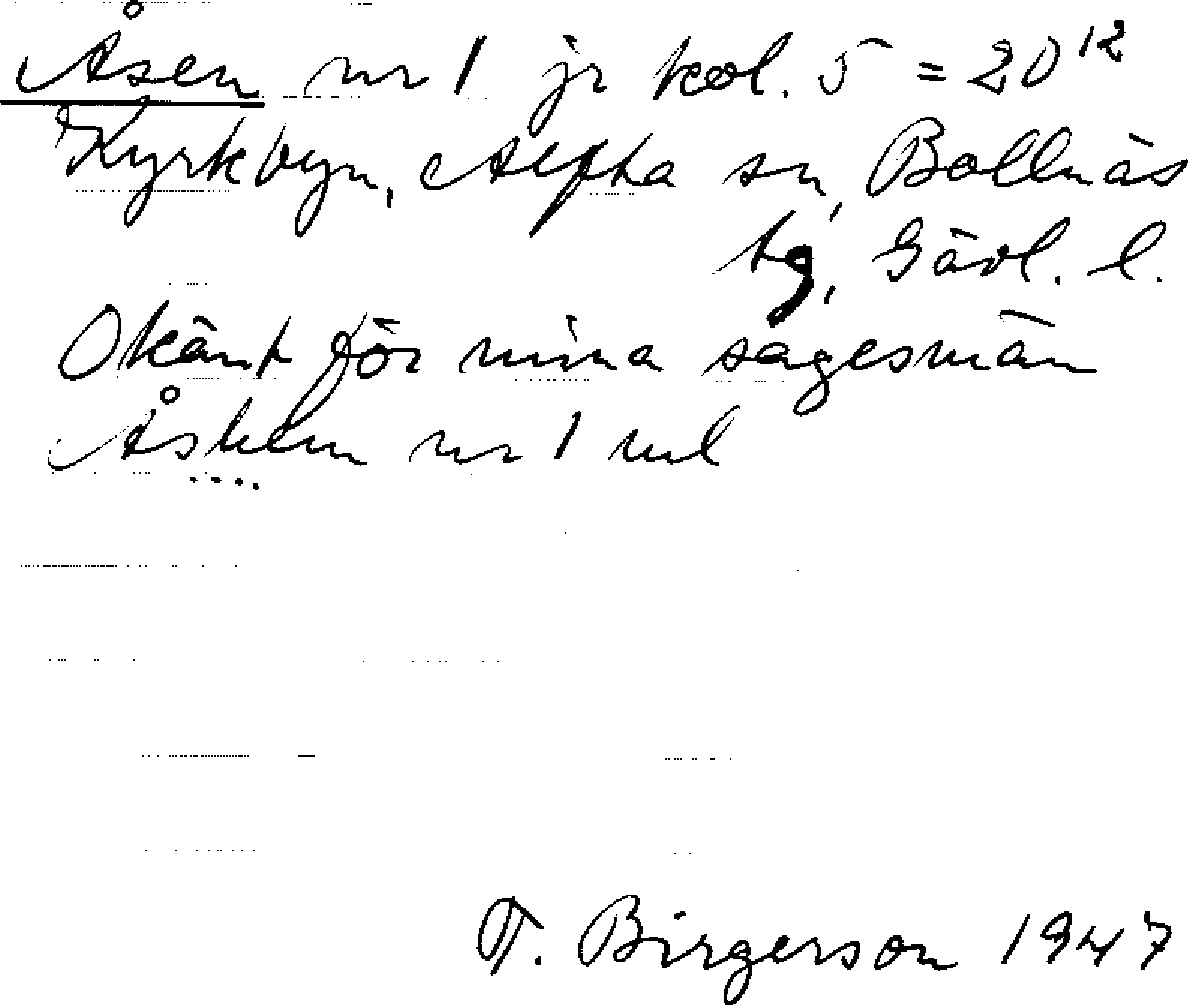 Åsen nr 1 jr kol. 5 = 20¹²
Kyrkbyn, Alfta sn, Bollnäs
tg, Gävl. l.
Okänt för mina sagesmän
nr 1
T. Birgerson 1947